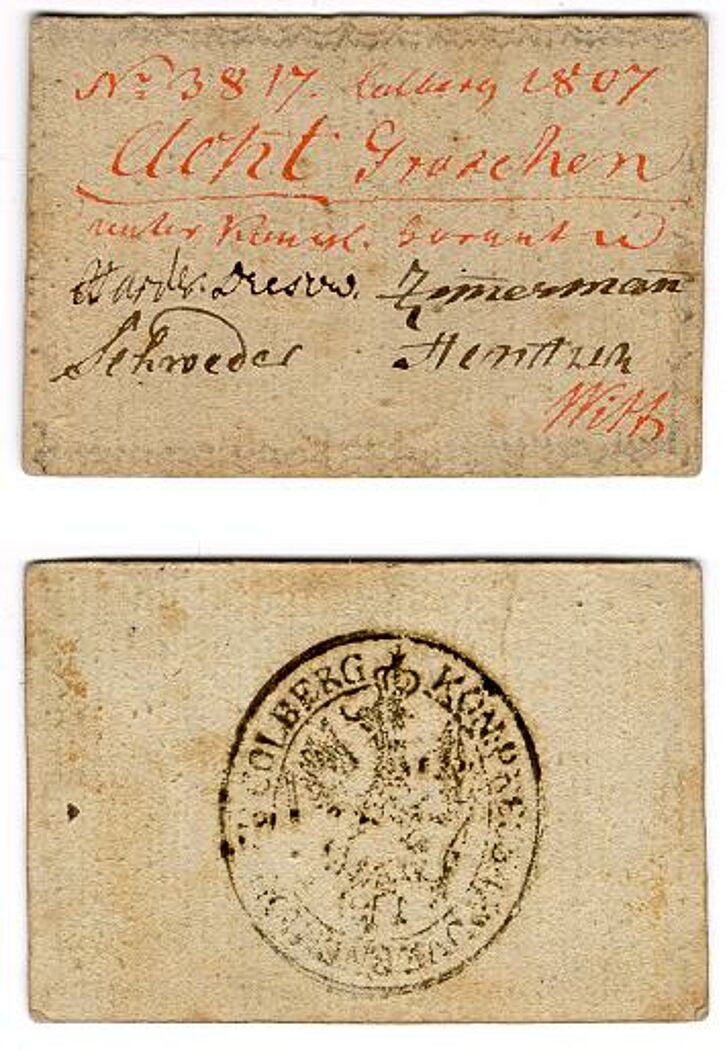 No 3817. Colberg 1807.
Acht Groschen
unter Königl. Garantie
Harder. Dresow. Zimmermann
Schroeder Hentsch
Witt
COLBERG KÖN: PREUSS: